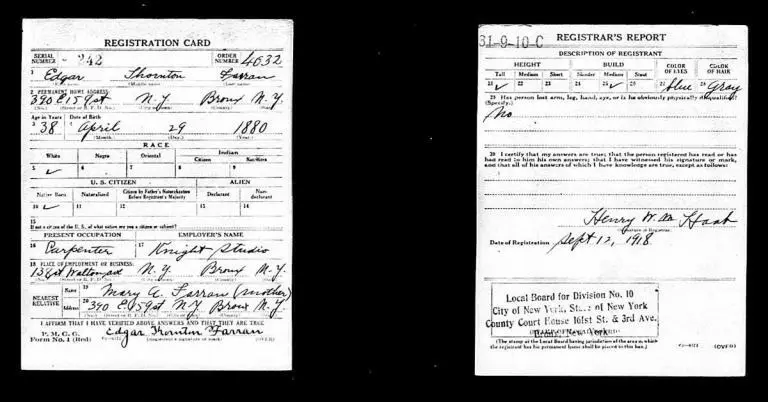 REGISTRATION CARD
SERIAL NUMBER 242 ORDER NUMBER 4032
1 Edgar Thornton Farran
(First name) (Middle name) (Last name)
2 PERMANENT HOME ADDRESS:
390 E 159 st N.Y. Bronx N.Y.
Age in Years Date of Birth
3 38 4 April 29 1880
(Month.) (Day.) (Year.)
RACE
White Negro Oriental Indian
Citizen Noncitizen
5 ✓ 6 7 8 9
U. S. CITIZEN ALIEN
Native Born Naturalized Citizen by Father's Naturalization Before Registrant's Majority Declarant Non-declarant
10 ✓ 11 12 13 14
15
If not a citizen of the U. S., of what nation are you a citizen or subject?
PRESENT OCCUPATION EMPLOYER'S NAME
16 Carpenter 17 Knight Studio
18 PLACE OF EMPLOYMENT OR BUSINESS:
N.Y. Bronx N.Y.
NEAREST RELATIVE
Name 19 Mary A. Farran (mother)
Address 20 390 E 159 st N.Y Bronx N.Y.
I AFFIRM THAT I HAVE VERIFIED ABOVE ANSWERS AND THAT THEY ARE TRUE
P. M. G. O.
Form No. 1 (Red) Edgar Thornton Farran
(Registrant's signature or mark) (OVER)
31-9-10-C REGISTRAR'S REPORT
DESCRIPTION OF REGISTRANT
HEIGHT BUILD COLOR OF EYES COLOR OF HAIR
Tall Medium Short Slender Medium Stout
21 ✓ 22 23 24 25 ✓ 26 27 blue 28 Gray
29 Has person lost arm, leg, hand, eye, or is he obviously physically disqualified?
(Specify.)
No
30 I certify that my answers are true; that the person registered has read or has
had read to him his own answers; that I have witnessed his signature or mark,
and that all of his answers of which I have knowledge are true, except as follows:
Henry W. M.
(Signature of Registrar)
Date of Registration Sept 12, 1918
Local Board for Division No. 10
City of New York, State of New York
County Court House 161st St. & 3rd Ave.
Bronx, New York
(The stamp of the Local Board having jurisdiction of the area in which
the registrant has his permanent home shall be placed in this box.)
(OVER)